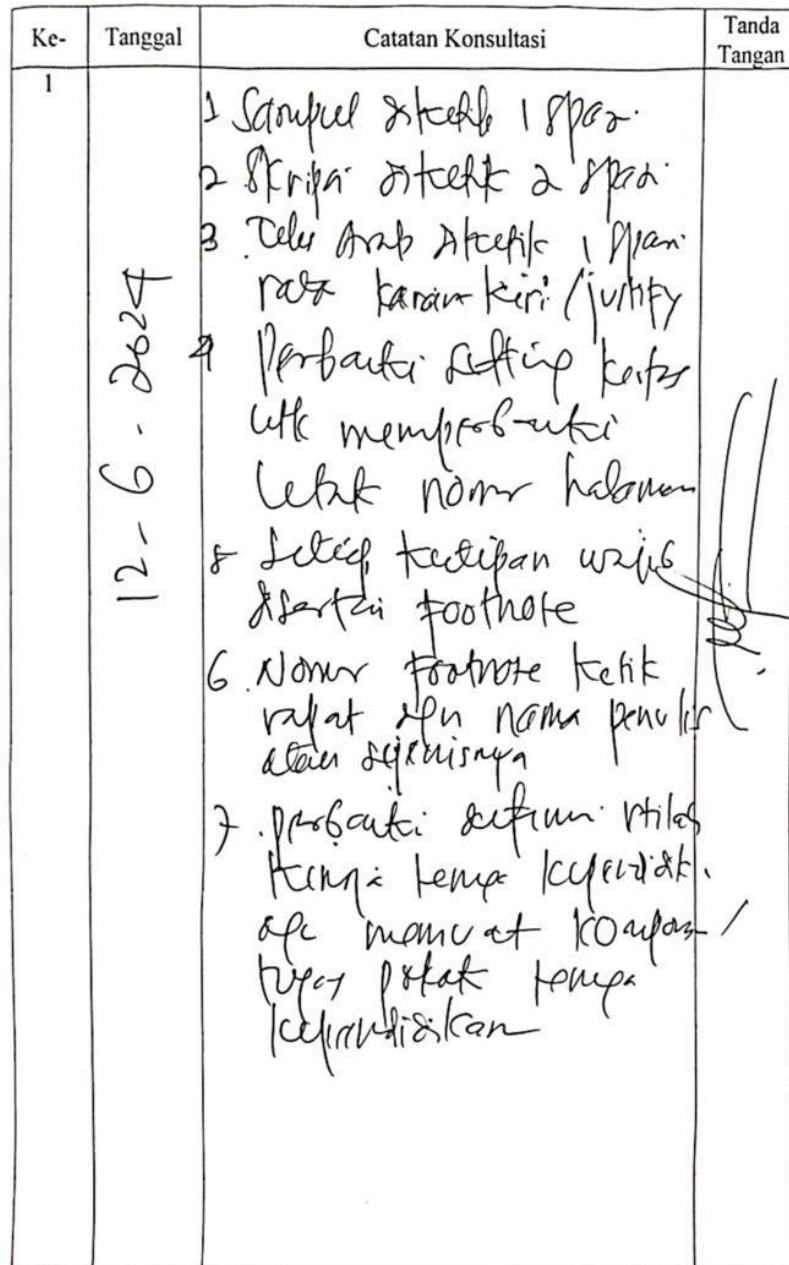 Ke-
Tanggal
Catatan Konsultasi
Tanda
Tangan
1
12-6-2024
1 Sampul diketik 1 spasi
2 Skripsi diketik 2 spasi
3. Teks Arab diketik 1 spasi
rata kanan kiri / justify
4 Perbaiki setting kertas
utk memperbaiki
letak nomor halaman
5 Setiap kutipan wajib
disertai footnote
6. Nomor footnote ketik
rapat dgn nama penulis
atau sejenisnya
7. perbaiki definisi istilah
kinerja tenaga kependidik.
memuat
tugas pokok tenaga
kependidikan